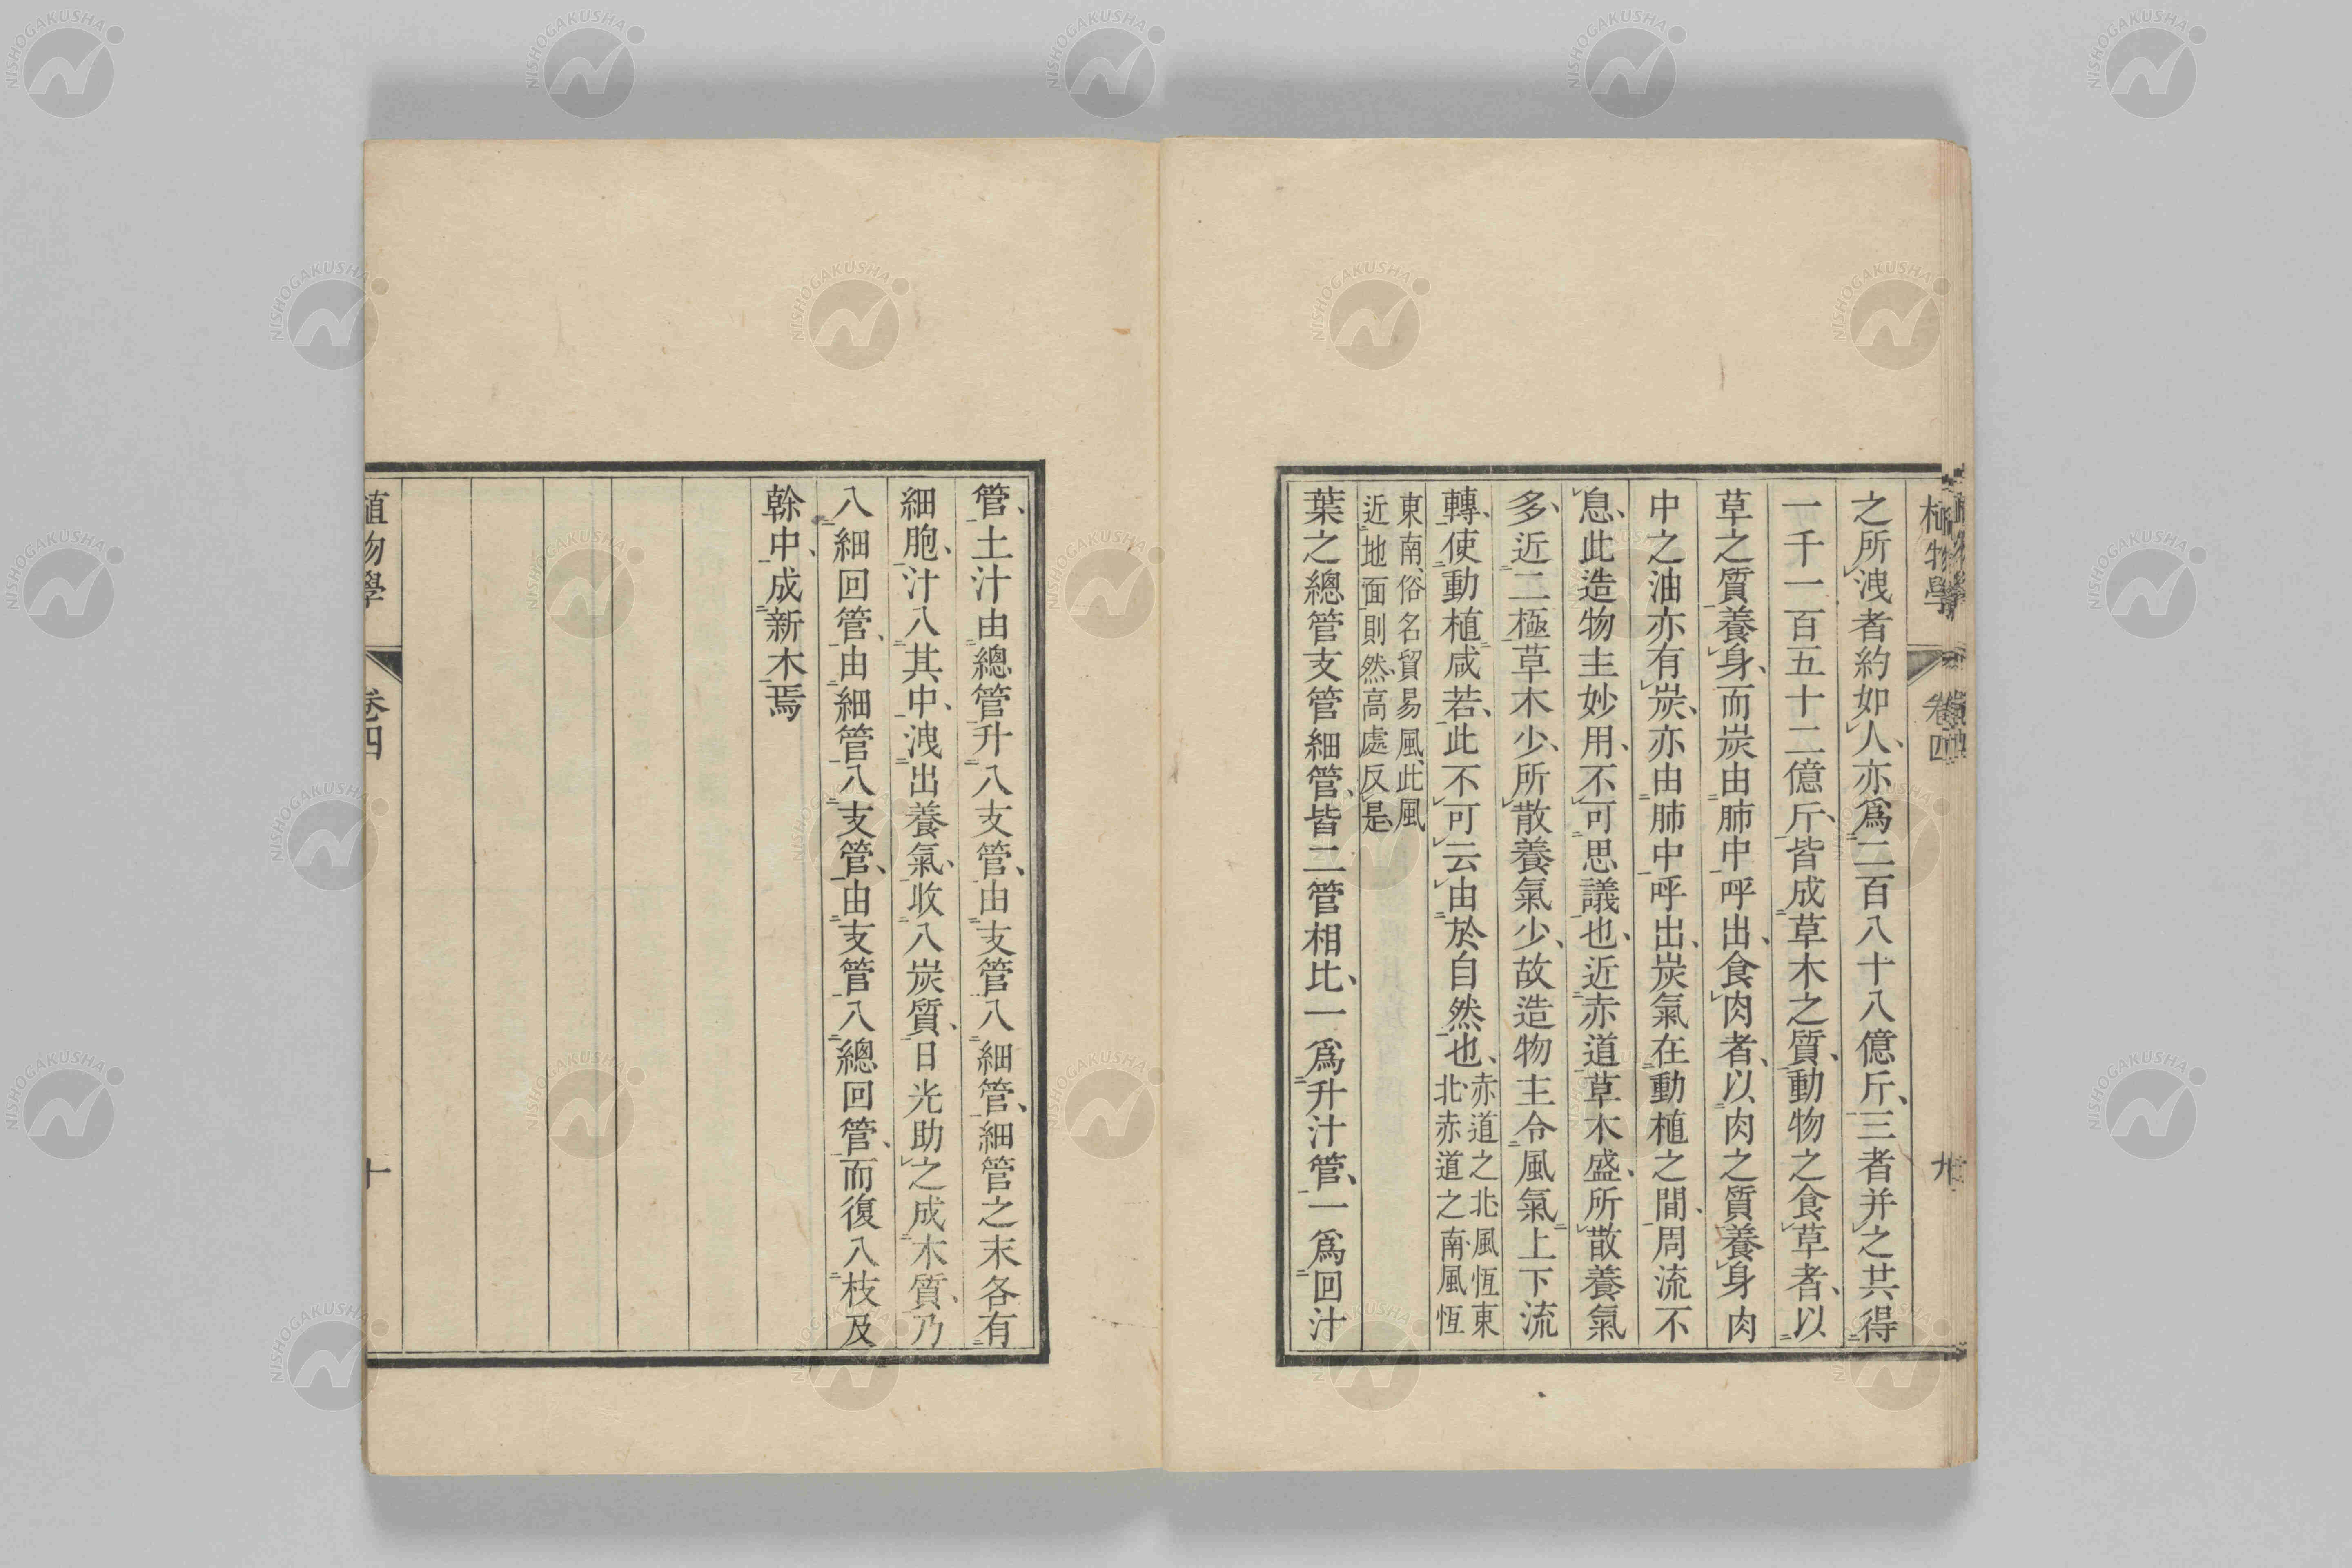 植物學 卷四 九
之所洩者約如人、亦爲二百八十八億斤、三者并之共得
一千一百五十二億斤、皆成草木之質、動物之食草者、以
草之質養身、而炭由肺中呼出、食肉者、以肉之質養身肉
中之油亦有炭、亦由肺中呼出、炭氣在動植之間、周流不
息、此造物主妙用、不可思議也、近赤道草木盛、所散養氣
多、近二極草木少、所散養氣少、故造物主令風氣上下流
轉、使動植咸若、此不可云由於自然也、赤道之北風恆東
北赤道之南風恆
東南、俗名貿易風、此風
近地面則然、高處反是、
葉之總管支管細管、皆二管相比、一爲升汁管、一爲回汁
管、土汁由總管升入支管、由支管入細管、細管之末各有
細胞、汁入其中、洩出養氣、收入炭質、日光助之成木質、乃
入細回管、由細管入支管、由支管入總回管、而復入枝及
榦中、成新木焉
植物學 卷四 十
NISHOGAKUSHA